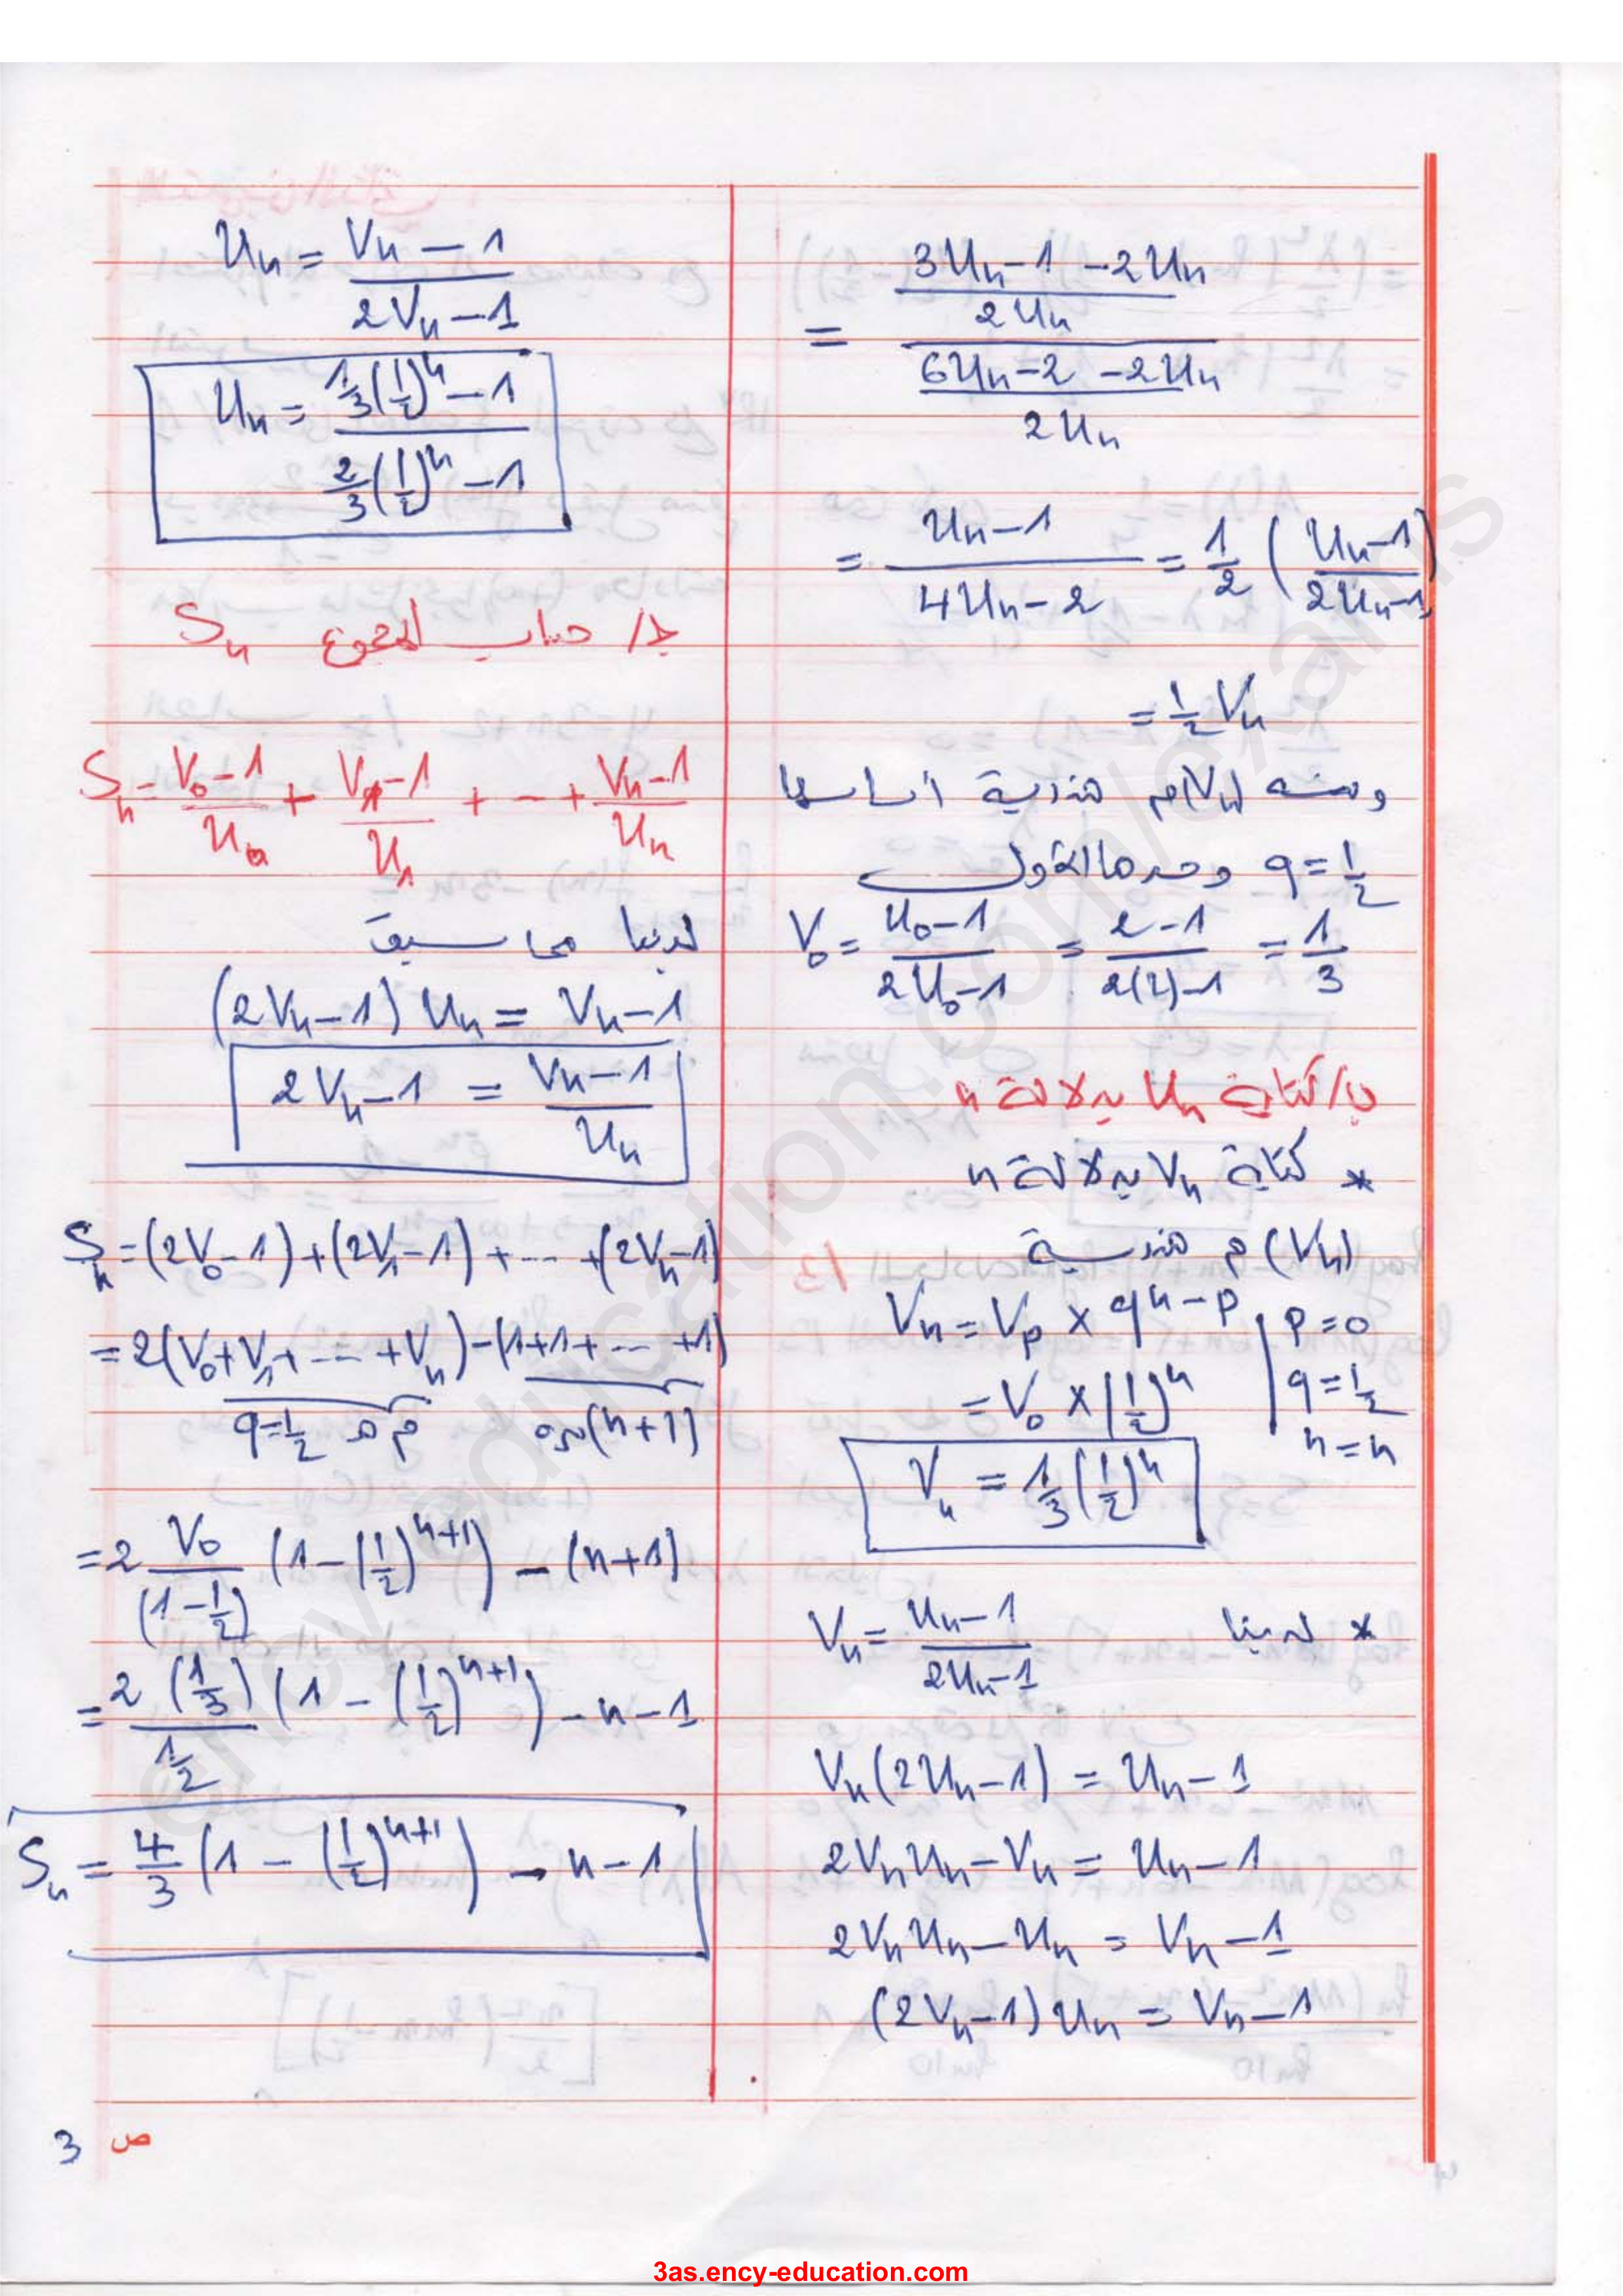 = \frac{\frac{3U_n - 1 - 2U_n}{2U_n}}{\frac{6U_n - 2 - 2U_n}{2U_n}}
= \frac{U_n - 1}{4U_n - 2} = \frac{1}{2} \left( \frac{U_n - 1}{2U_n - 1} \right)
= \frac{1}{2} V_n
ومنه (V_n) م هندسية أساسها
q = \frac{1}{2} وحدها الأول
V_0 = \frac{U_0 - 1}{2U_0 - 1} = \frac{2 - 1}{2(2) - 1} = \frac{1}{3}
ب/ كتابة U_n بدلالة n
* كتابة V_n بدلالة n
(V_n) م هندسية
V_n = V_p × q^{n-p} | p = 0
= V_0 × (\frac{1}{2})^n | q = \frac{1}{2}
n = n
V_n = \frac{1}{3} (\frac{1}{2})^n
* لدينا V_n = \frac{U_n - 1}{2U_n - 1}
V_n (2U_n - 1) = U_n - 1
2V_n U_n - V_n = U_n - 1
2V_n U_n - U_n = V_n - 1
(2V_n - 1) U_n = V_n - 1
U_n = \frac{V_n - 1}{2V_n - 1}
U_n = \frac{\frac{1}{3} (\frac{1}{2})^n - 1}{\frac{2}{3} (\frac{1}{2})^n - 1}
ج/ حساب المجموع S_n
S_n = \frac{V_0 - 1}{U_0} + \frac{V_1 - 1}{U_1} + ... + \frac{V_n - 1}{U_n}
لدينا مما سبق
(2V_n - 1) U_n = V_n - 1
2V_n - 1 = \frac{V_n - 1}{U_n}
S_n = (2V_0 - 1) + (2V_1 - 1) + ... + (2V_n - 1)
= 2(V_0 + V_1 + ... + V_n) - (1 + 1 + ... + 1)
م هـ q = \frac{1}{2} (n+1) مرة
= 2 \frac{V_0}{(1 - \frac{1}{2})} (1 - (\frac{1}{2})^{n+1}) - (n+1)
= \frac{2 (\frac{1}{3})}{\frac{1}{2}} (1 - (\frac{1}{2})^{n+1}) - n - 1
S_n = \frac{4}{3} (1 - (\frac{1}{2})^{n+1}) - n - 1
ص 3
ency-education.com/exams
3as.ency-education.com